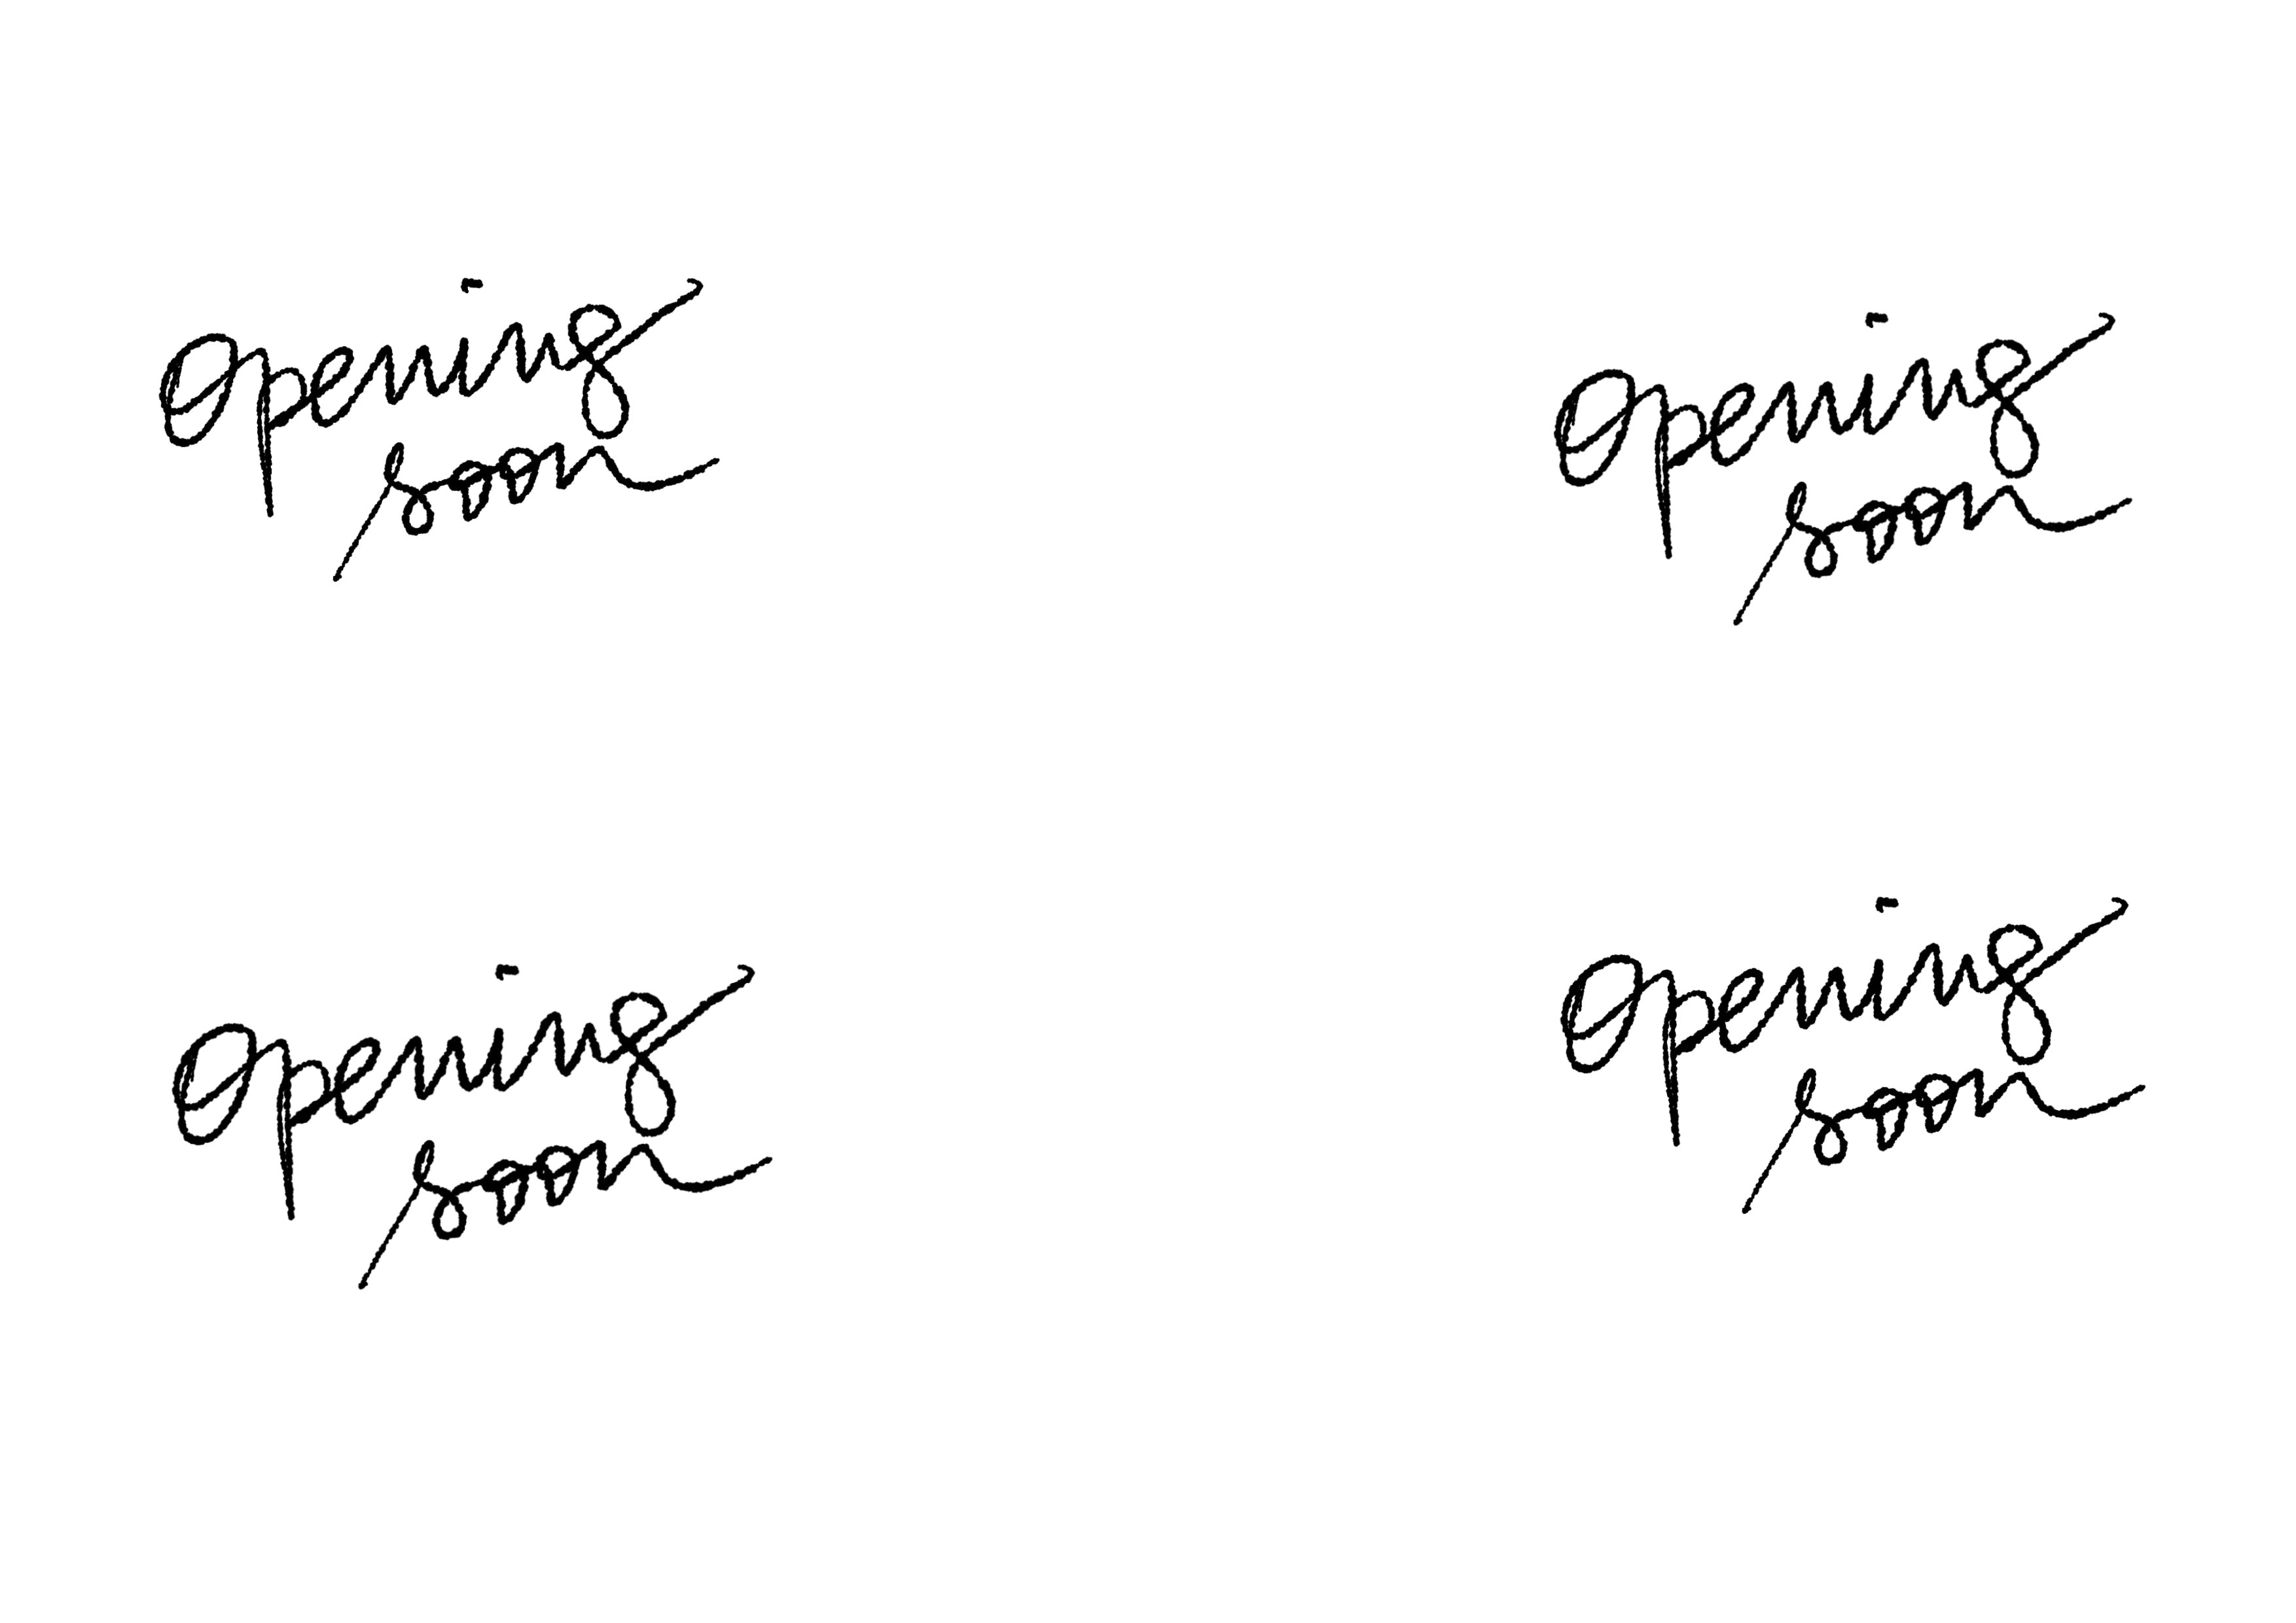 opening
soon
opening
soon
opening
soon
opening
soon